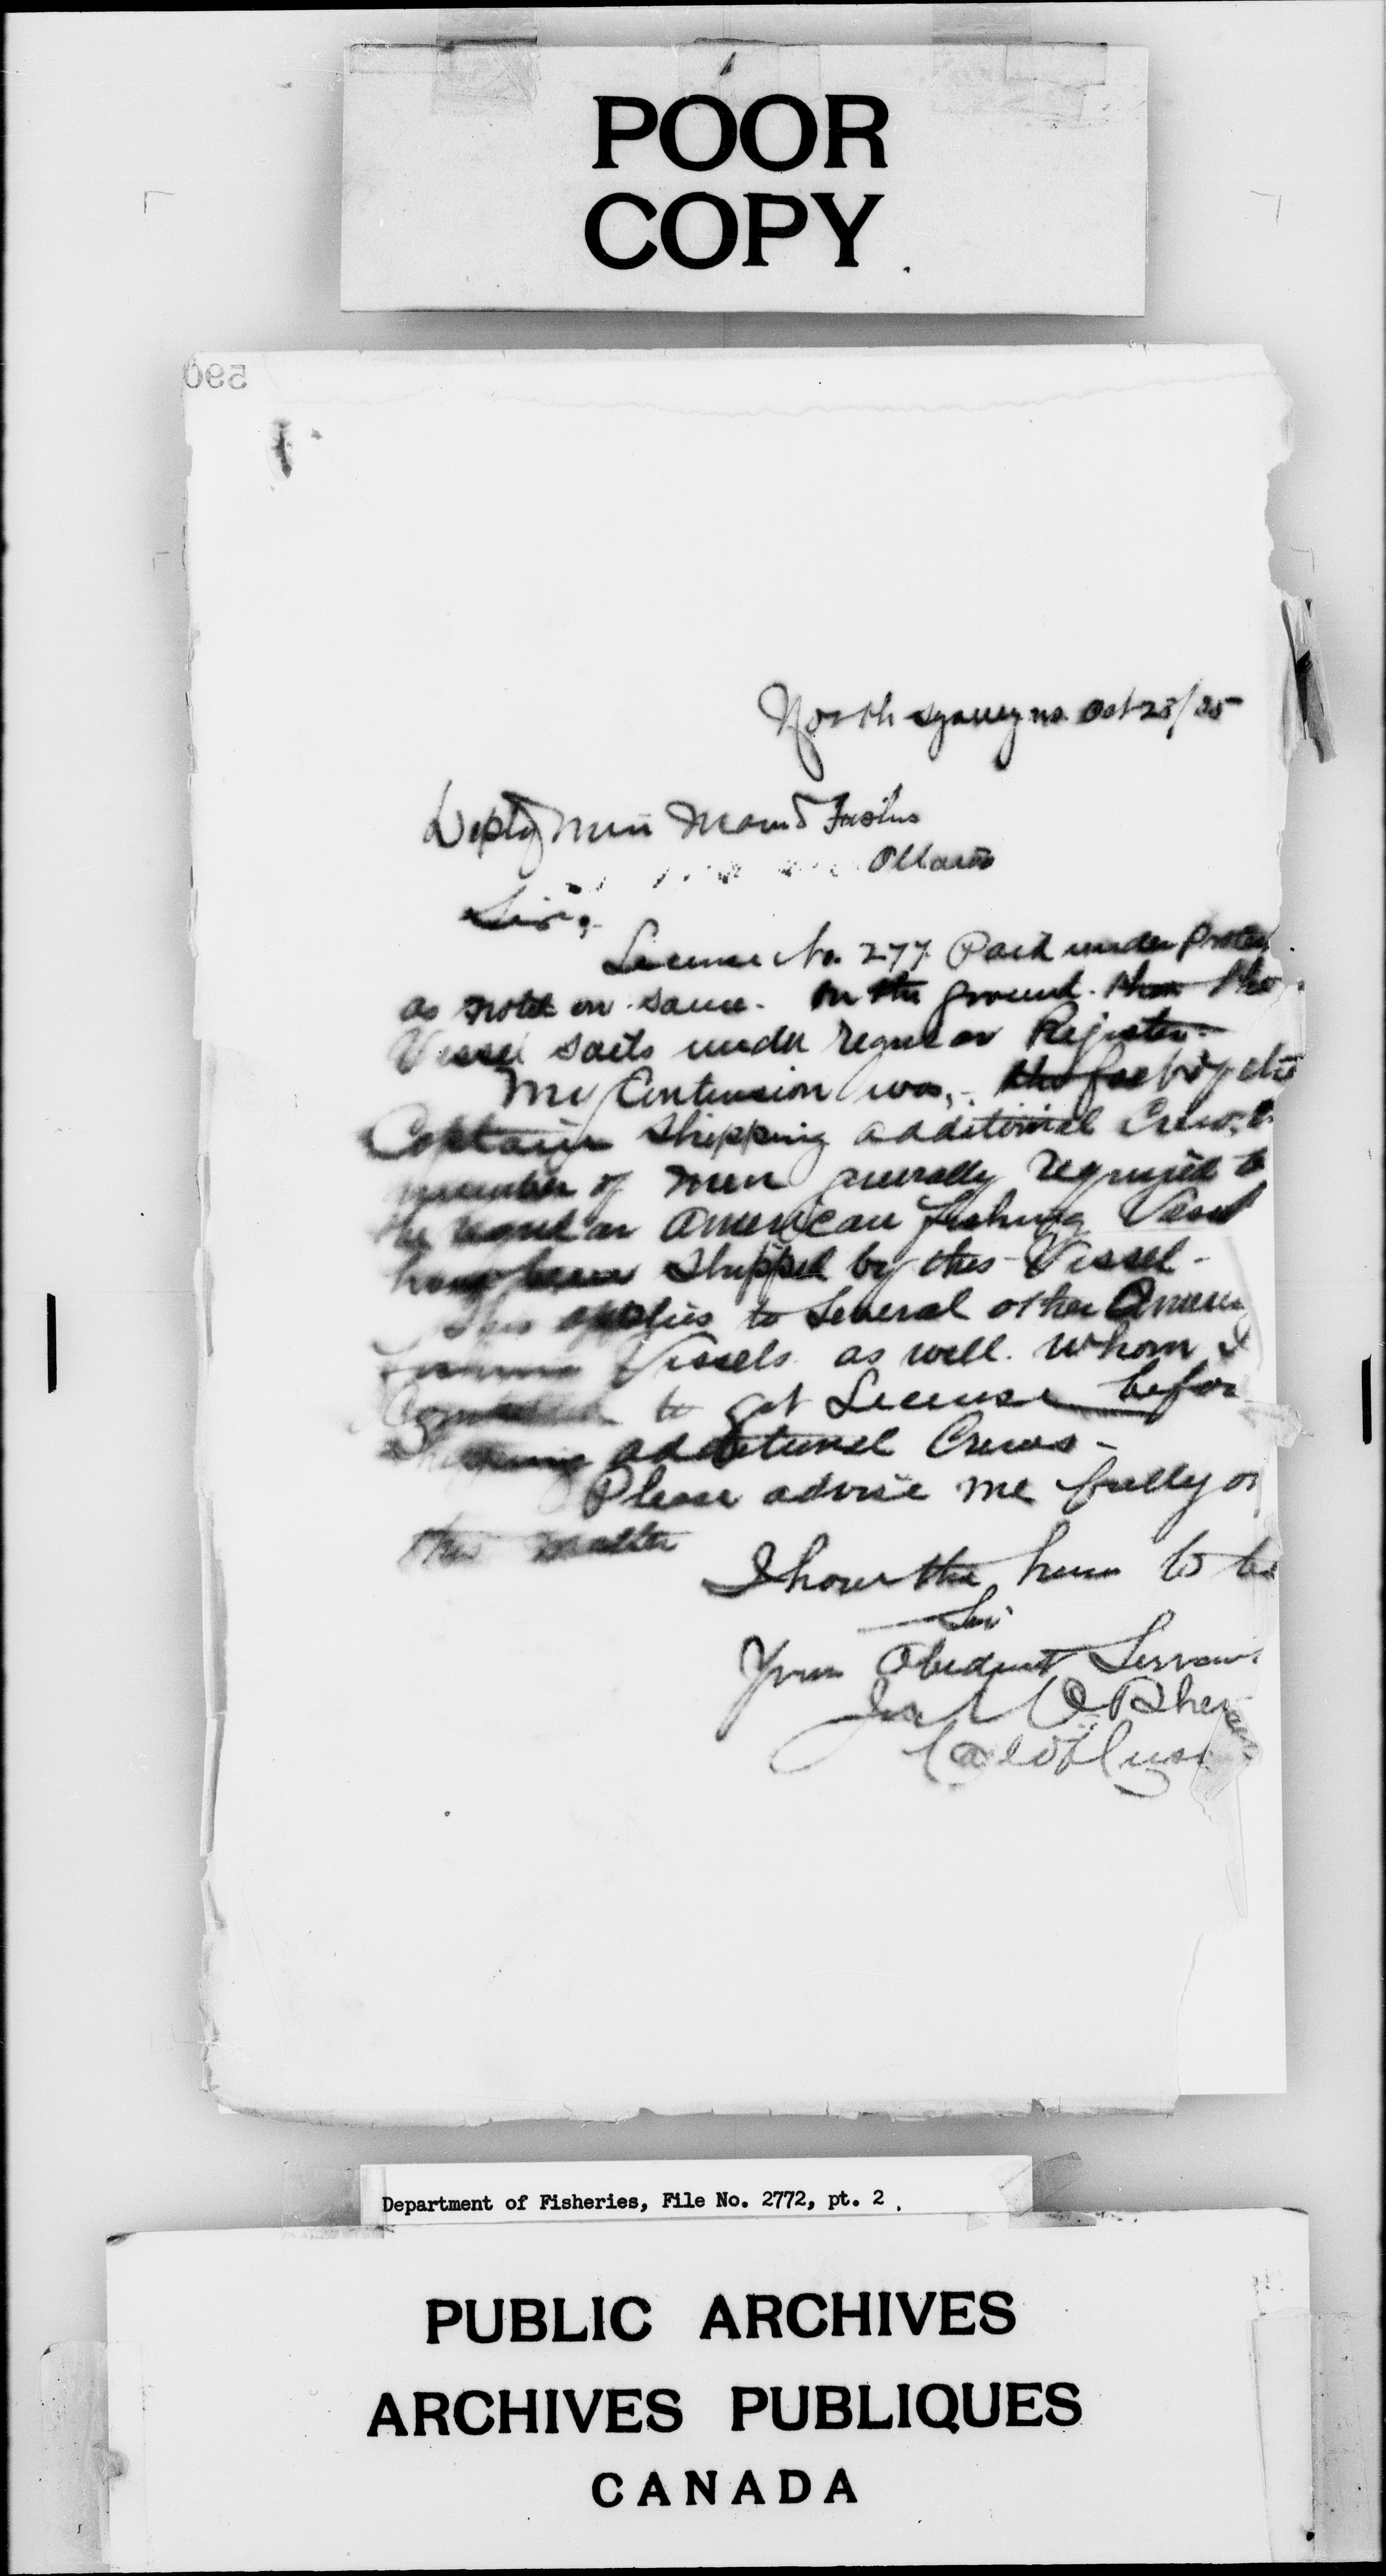 POOR
COPY
590
North Sydney ns. Oct 28/25
Depty Min
Ottawa
Sir,-
License No. 277 Paid under Protes
as noted on same. on the ground. the
Vessel sails under regular Register.-
My Contension was,- the fact of the
Captain shipping additional Crew,
number of men generally required to
the regular American fishing Vessel
have been shipped by this Vessel-
This applies to Several other Ameri
fishing Vessels as well. whom I
to get License before
Shipping additional Crews-
Please advise me fully on
this matter
I have the honor to be
Sir
Your Obedient Servan
Department of Fisheries, File No. 2772, pt. 2
PUBLIC ARCHIVES
ARCHIVES PUBLIQUES
CANADA